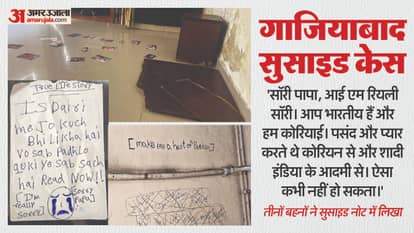 अमर उजाला
amarujala.com
गाजियाबाद
सुसाइड केस
'सॉरी पापा, आई एम रियली
सॉरी। आप भारतीय हैं और
हम कोरियाई। पसंद और प्यार
करते थे कोरियन से और शादी
इंडिया के आदमी से। ऐसा
कभी नहीं हो सकता।'
तीनों बहनों ने सुसाइड नोट में लिखा
True Life Story
Is Dairi
me Jo kuch
Bhi Likha hai
Vo sab Padhlo
quki yo sab sach
hai Read Now!!
[I'm
really
Sorry]
Sorry
Papa
[make me a hert of